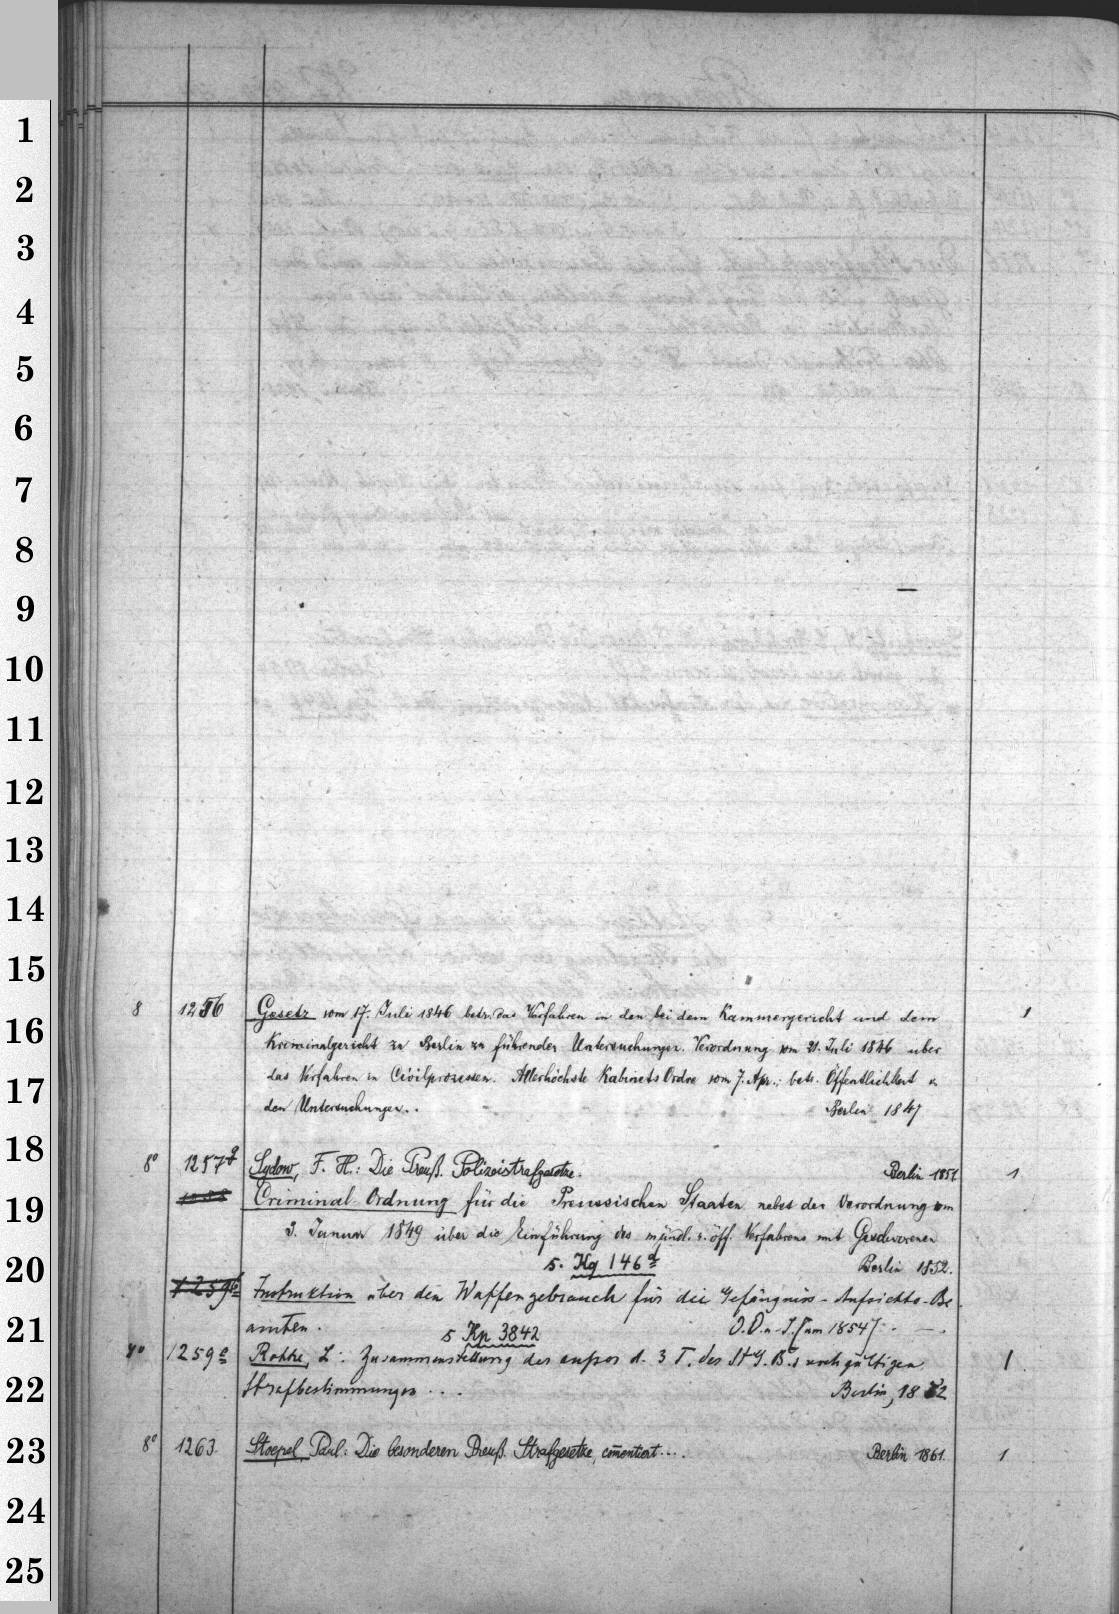 1
2
3
4
5
6
7
8
9
10
11
12
13
14
15
16
17
18
19
20
21
22
23
24
25
8 1256 Gesetz vom 17. Juli 1846 betr. das Verfahren in den bei dem Kammergericht und dem 1
Kriminalgericht zu Berlin zu führenden Untersuchungen. Verordnung vom 21. Juli 1846 über
das Verfahren in Civilprozessen. Allerhöchste Kabinets Ordre vom 7. Apr.; betr. Öffentlichkeit in
den Untersuchungen.. Berlin 1847
8° 1257 Sydow, F. H.: Die Preuß. Polizeistrafgesetze. Berlin 1851 1
Criminal-Ordnung für die Preussischen Staaten nebst der Verordnung vom
3. Januar 1849 über die Einführung des mündl. u. öff. Verfahrens mit Geschworenen
s. Kg 146 d Berlin 1852.
1259b Instruktion über den Waffengebrauch für die Gefängniss-Aufsichts-Be-
amten. s Kp 3842 O. O. u. J. [um 1854]
4° 1259c L.: Zusammenstellung der ausser d. 3 T. des St. G. B.s noch gültigen 1
Strafbestimmungen ... Berlin, 18
8° 1263. Stoepel Paul: Die besonderen Preuß. Strafgesetze, com̄entiert.... Berlin 1861. 1